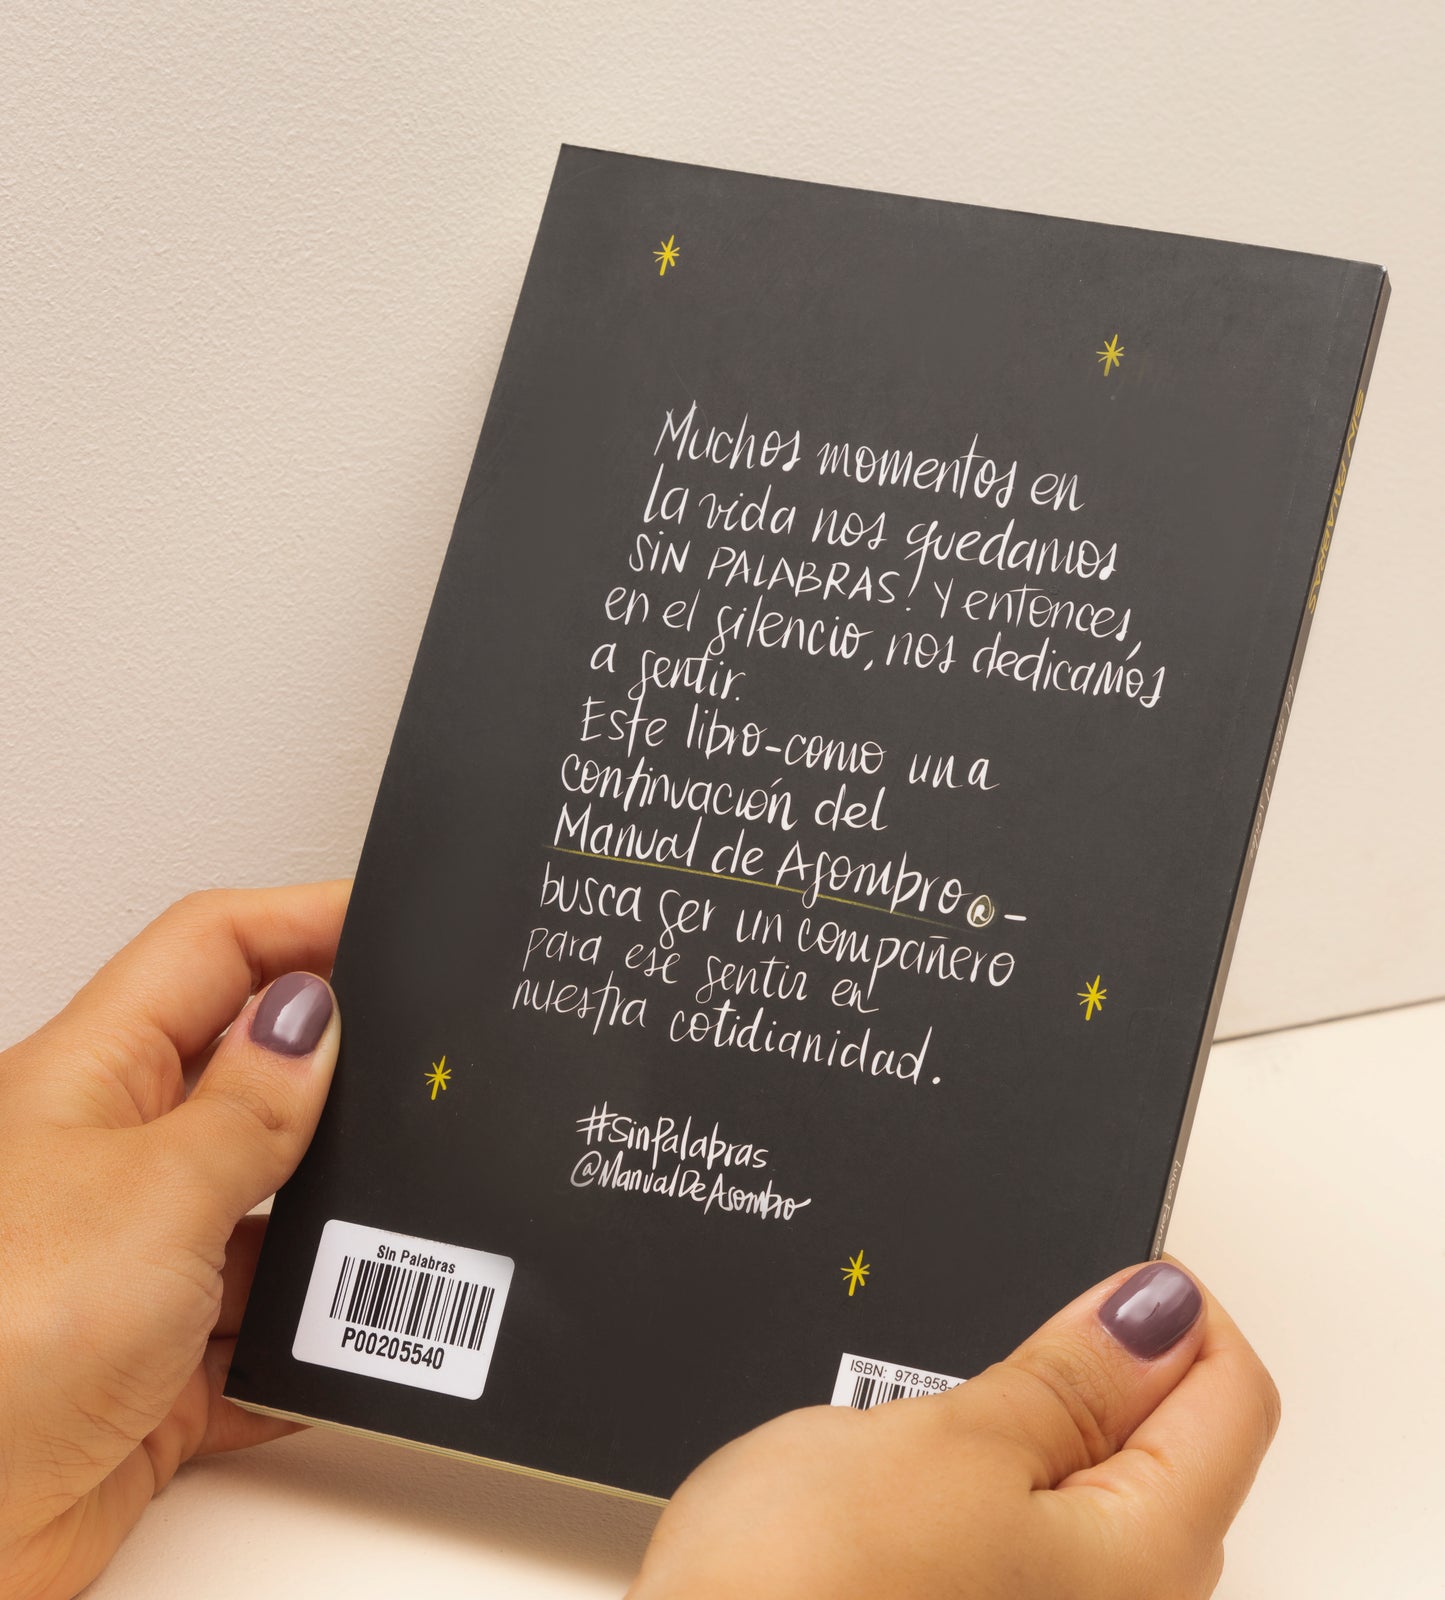 Muchos momentos en
la vida nos quedamos
SIN PALABRAS! Y entonces,
en el silencio, nos dedicamos
a sentir.
Este libro-como una
continuación del
Manual de Asombro®-
busca ser un compañero
para ese sentir en
nuestra cotidianidad.
#SinPalabras
@ManualDeAsombro
Sin Palabras
P00205540
ISBN: 978-958-
SIN PALABRAS
Luisa